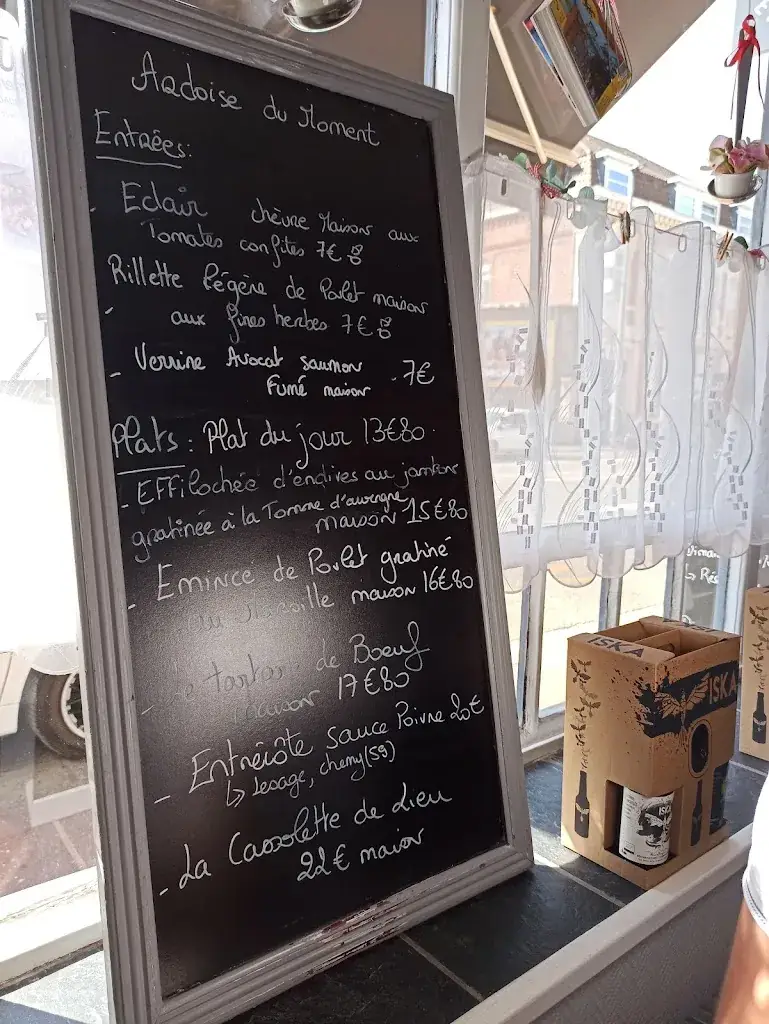 Ardoise du Moment
Entrées:
- Eclair chèvre Maison aux
Tomates confites 7€
Rillette légère de Poulet maison
- aux fines herbes 7€
- Verrine Avocat saumon
Fumé maison - 7€
Plats: Plat du jour 13€80
- Effilochée d'endives au jambon
gratinée à la Tomme d'auvergne
maison 15€80
- Emincé de Poulet gratiné
maison 16€80
- Le tartare de Boeuf
maison 17€80
- Entrecôte sauce Poivre 20€
↳ Lesage, chemy (59)
- La Cassolette de Lieu
22€ maison
ISKA
ISKA
ISKA